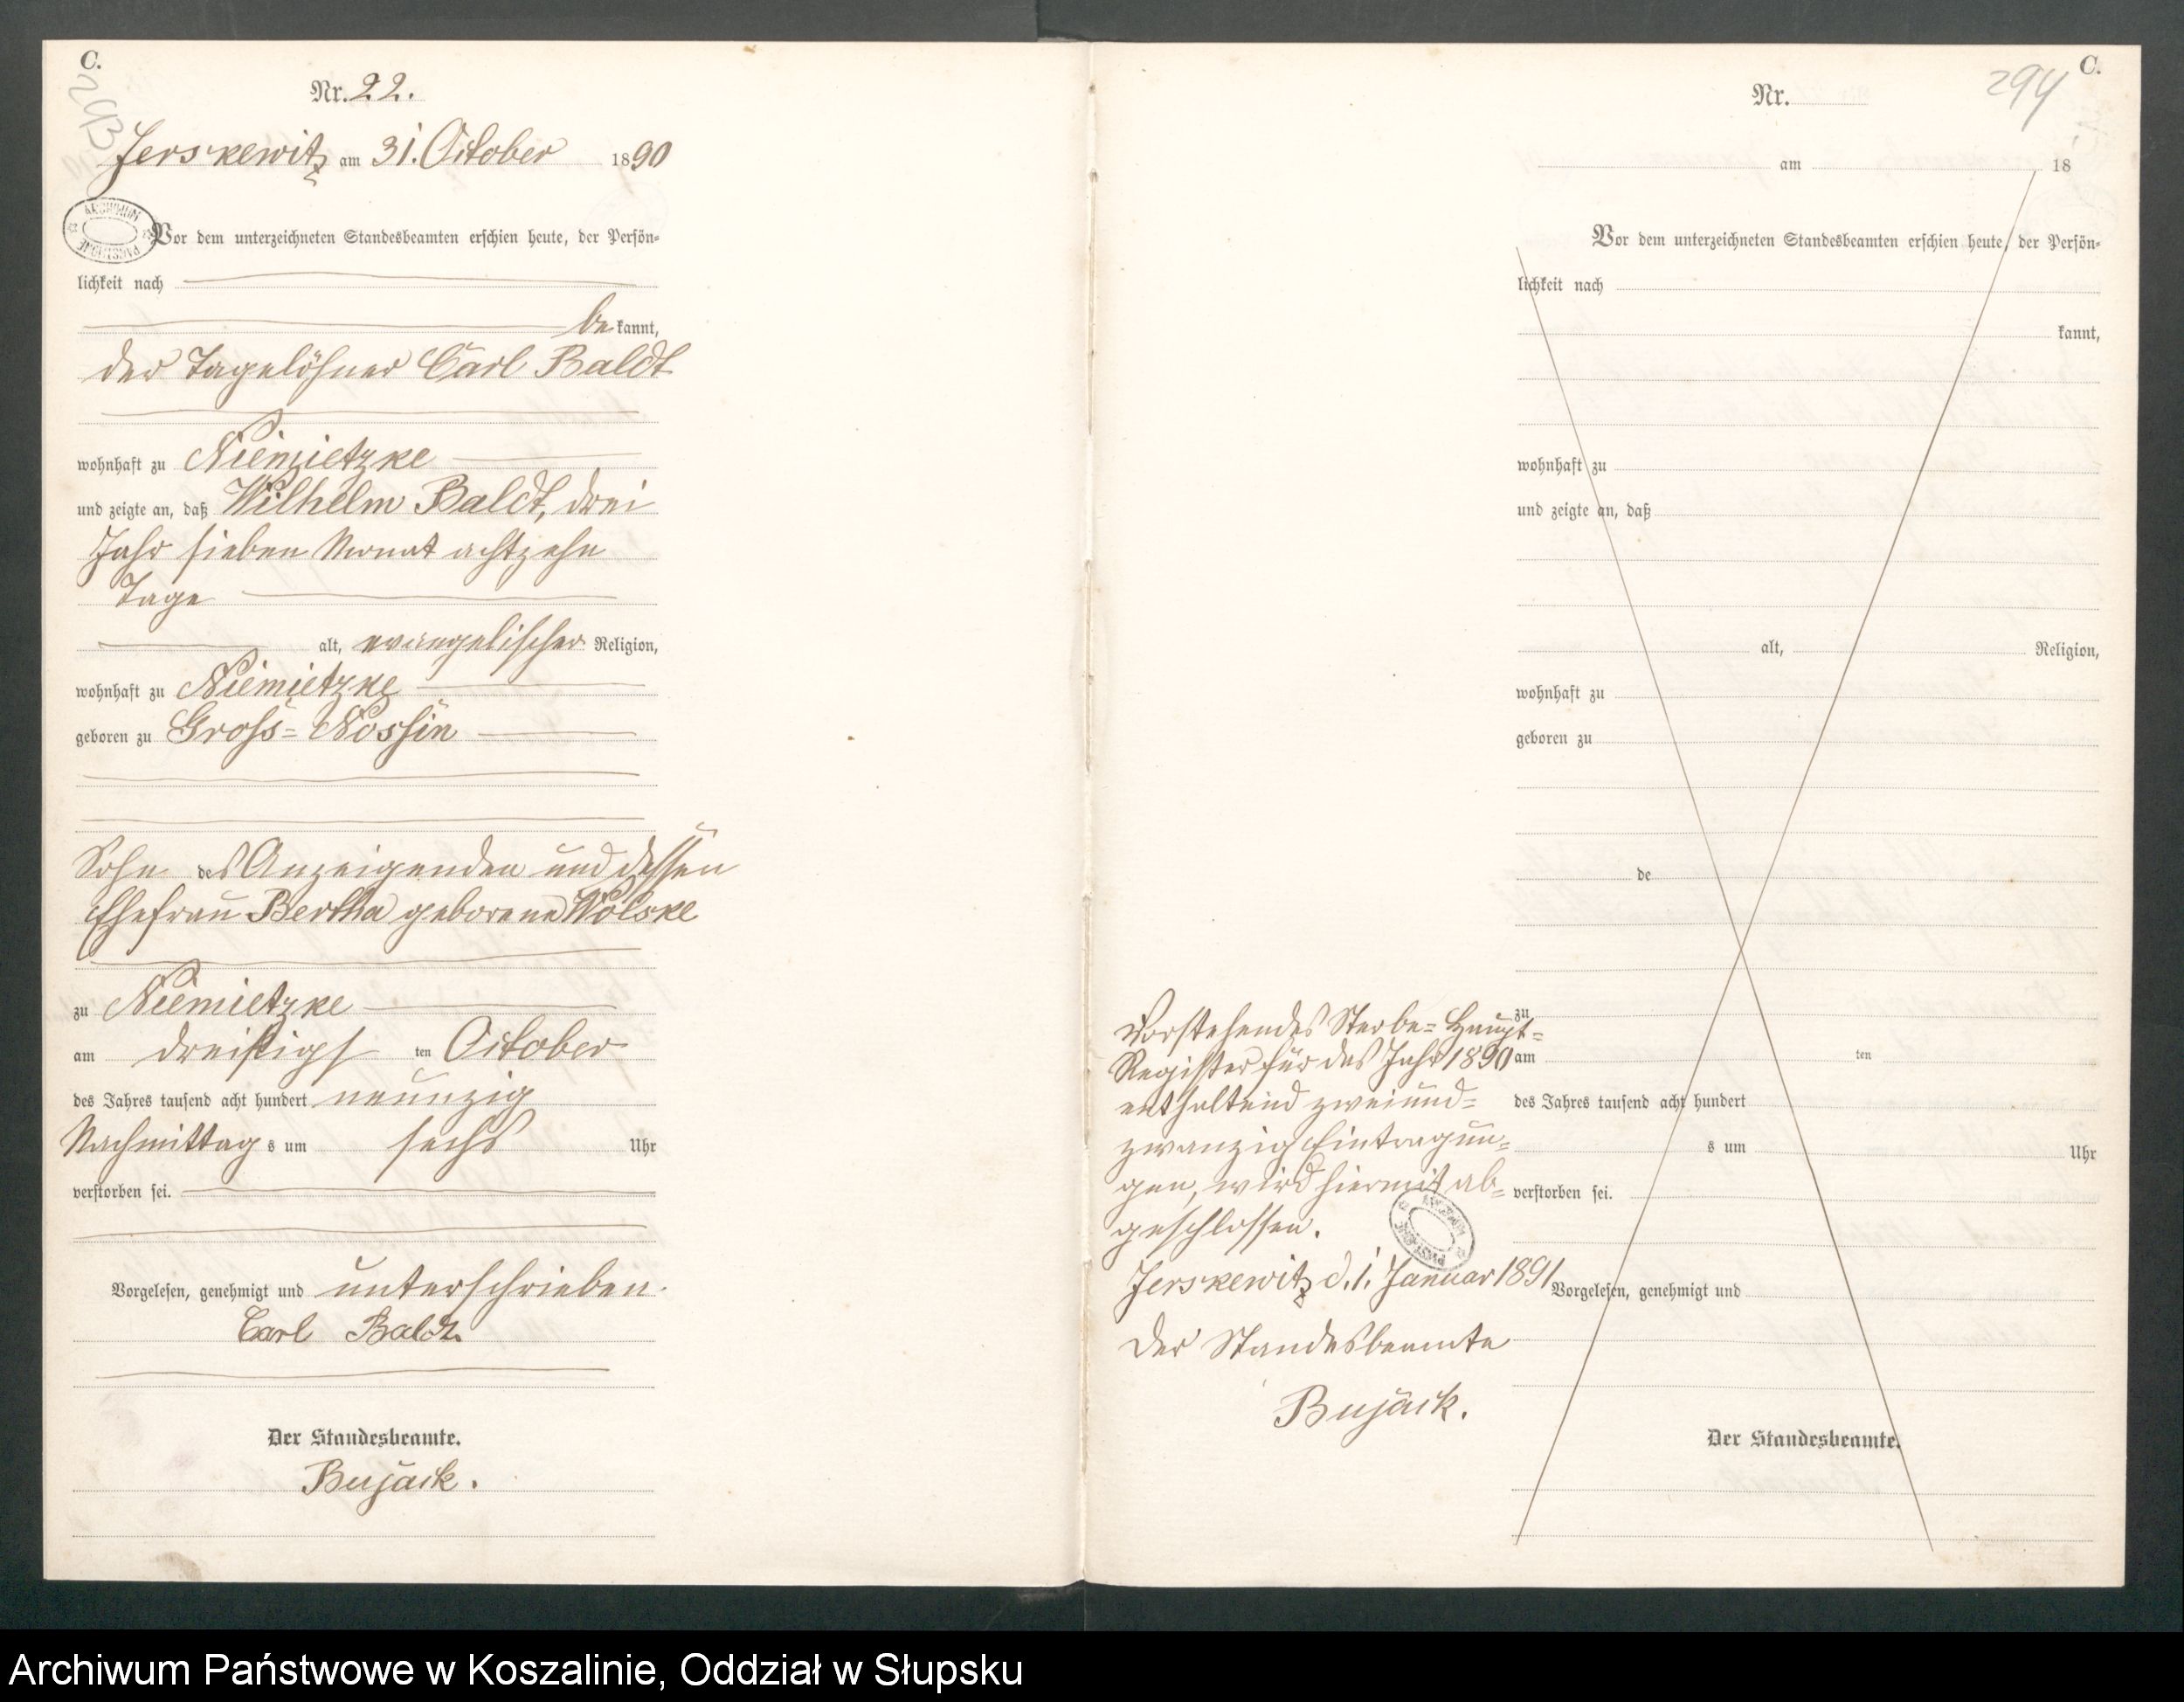 C.
Nr. 22.
Jerskewitz am 31. October 1890
ARCHIWUM PAŃSTWOWE
Vor dem unterzeichneten Standesbeamten erschien heute, der Persön-
lichkeit nach
be kannt,
der Tagelöhner Carl Baldt
wohnhaft zu Niemietzke
und zeigte an, daß Wilhelm Baldt, drei
Jahr sieben Monat achtzehn
Tage
alt, evangelischer Religion,
wohnhaft zu Niemietzke
geboren zu Gross-Nossin
Sohn des Anzeigenden und dessen
Ehefrau Bertha geborene Wolske
zu Niemietzke
am dreißigs ten October
des Jahres tausend acht hundert neunzig
Nachmittag s um sechs Uhr
verstorben sei.
Vorgelesen, genehmigt und unterschrieben.
Carl Baldt
Der Standesbeamte.
Bujack.
C.
294
Nr.
am 18
Vor dem unterzeichneten Standesbeamten erschien heute, der Persön-
lichkeit nach
kannt,
wohnhaft zu
und zeigte an, daß
alt, Religion,
wohnhaft zu
geboren zu
de
zu
am ten
des Jahres tausend acht hundert
s um Uhr
verstorben sei.
Vorgelesen, genehmigt und
Der Standesbeamte.
Vorstehendes Sterbe-Haupt-
Register für das Jahr 1890
enthaltend zweiund-
zwanzig Eintragun-
gen, wird hiermit ab-
geschlossen.
ARCHIWUM PAŃSTWOWE
Jerskewitz d. 1. Januar 1891
Der Standesbeamte
Bujack.
Archiwum Państwowe w Koszalinie, Oddział w Słupsku